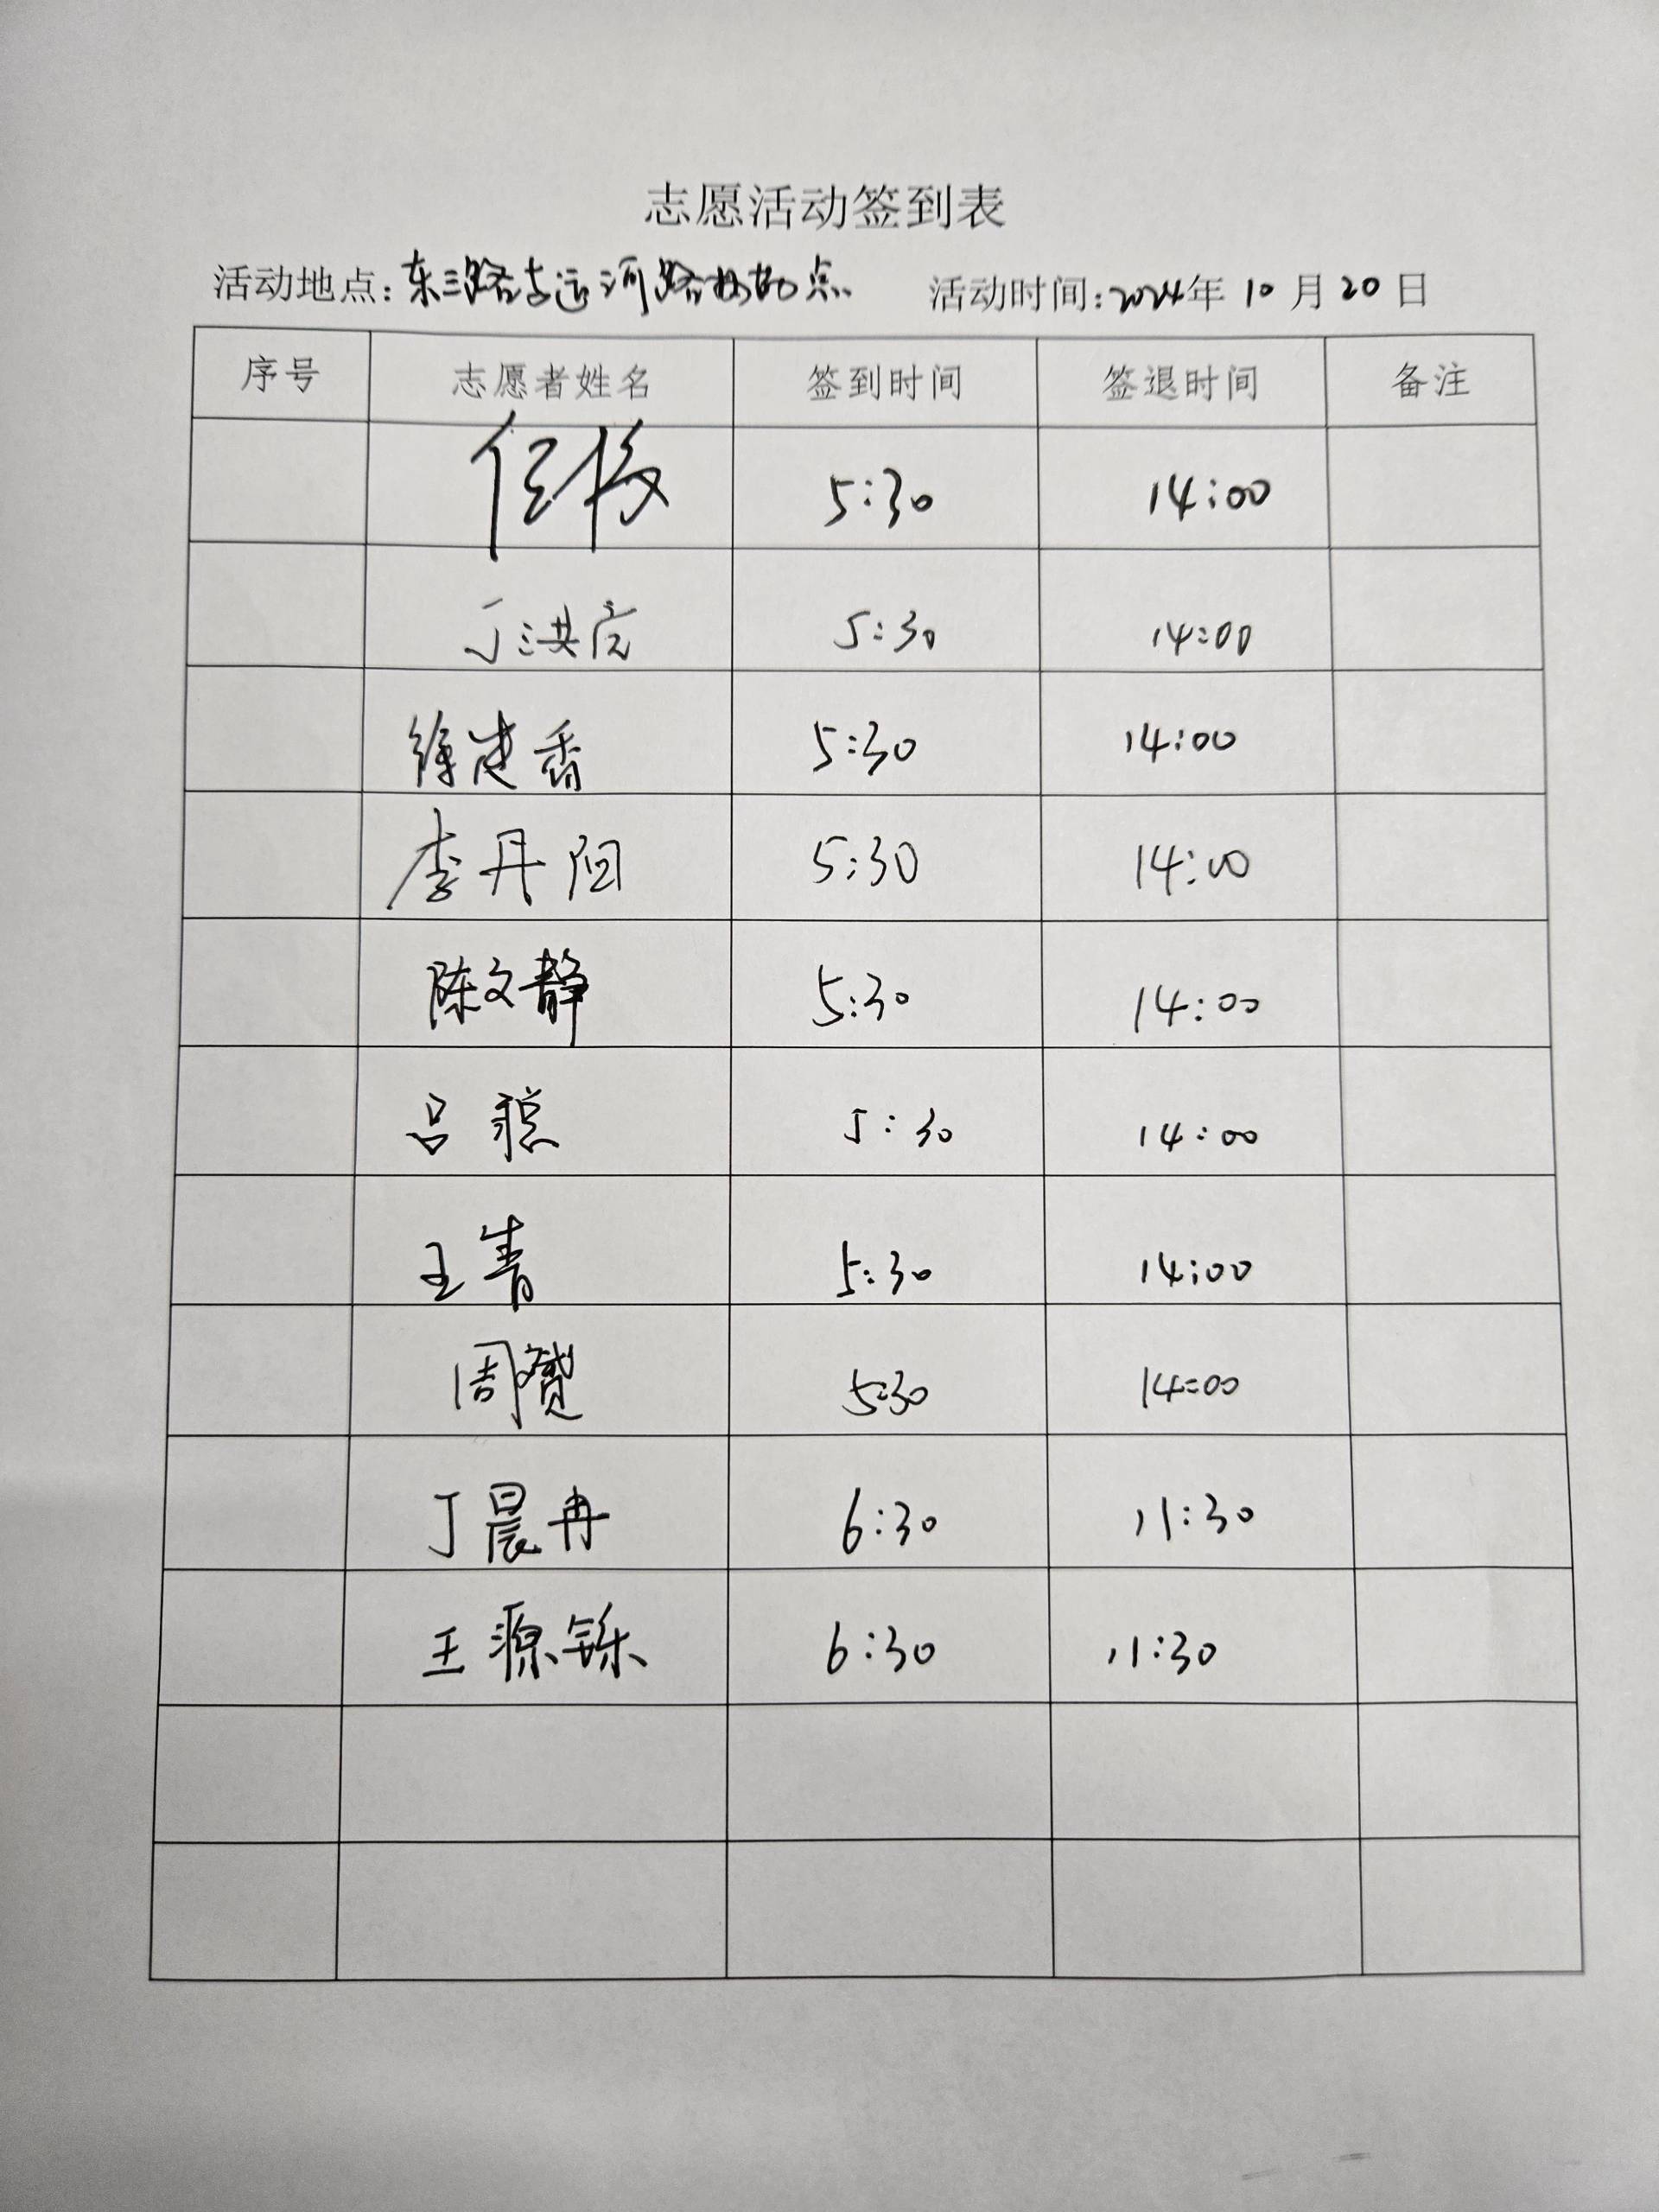 志愿活动签到表
活动地点：东三路与运河路 点 活动时间：2024年 10 月 20 日
序号 志愿者姓名 签到时间 签退时间 备注
任 5:30 14:00
丁洪 5:30 14:00
徐建香 5:30 14:00
李丹阳 5:30 14:00
陈文静 5:30 14:00
吕 5:30 14:00
王青 5:30 14:00
周赟 5:30 14:00
丁晨冉 6:30 11:30
王源铄 6:30 11:30